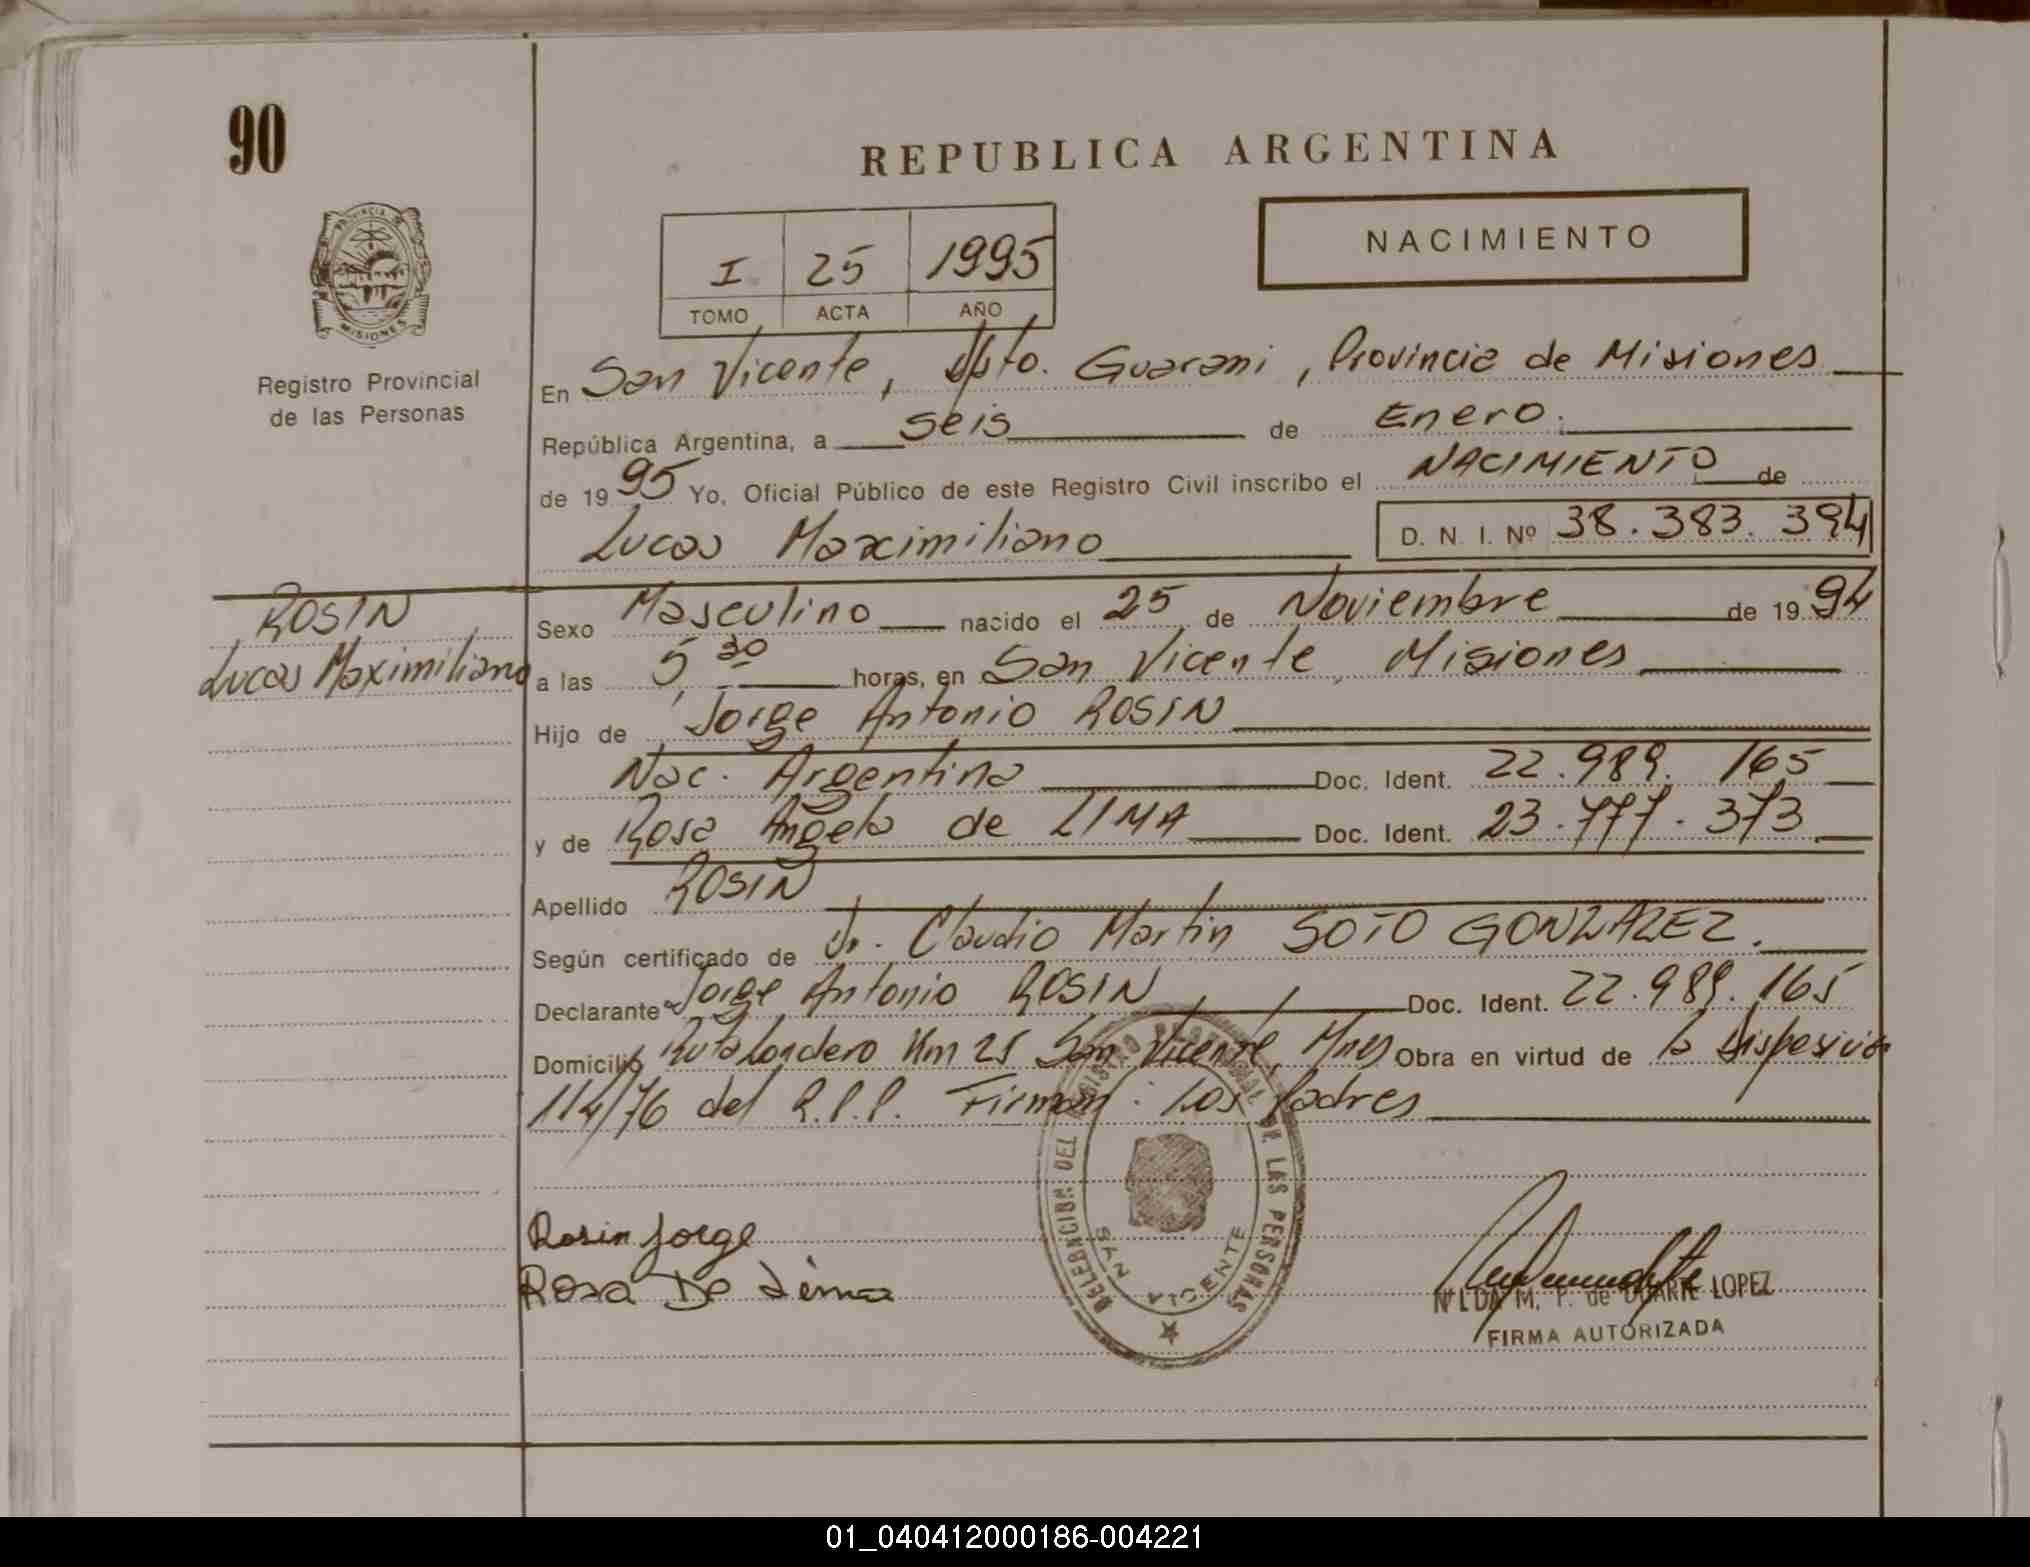 90
REPUBLICA ARGENTINA
NACIMIENTO
I 25 1995
TOMO ACTA AÑO
PROVINCIA DE MISIONES
Registro Provincial
de las Personas
En San Vicente, Dpto. Guarani, Provincia de Misiones
República Argentina, a seis de Enero.
de 1995 Yo, Oficial Público de este Registro Civil inscribo el NACIMIENTO de
Lucas Maximiliano D. N. I. Nº 38.383.394
ROSIN
Lucas Maximiliano
Sexo Masculino nacido el 25 de Noviembre de 1994
a las 5,30 horas, en San Vicente, Misiones
Hijo de Jorge Antonio ROSIN
Nac. Argentina Doc. Ident. 22.989.165
y de Rosa Angela de LIMA Doc. Ident. 23.777.373
Apellido ROSIN
Según certificado de Dr. Claudio Martin SOTO GONZALEZ.
Declarante Jorge Antonio ROSIN Doc. Ident. 22.989.165
Domicilio Ruta Km 25 San Vicente, Mnes Obra en virtud de la Disposición
114/76 del R.P.P. Firman: Los Padres
DELEGACION DEL REGISTRO PROVINCIAL DE LAS PERSONAS
SAN VICENTE
Rosin Jorge
Rosa De Lima
M. P. de DUARTE LOPEZ
FIRMA AUTORIZADA
01_040412000186-004221